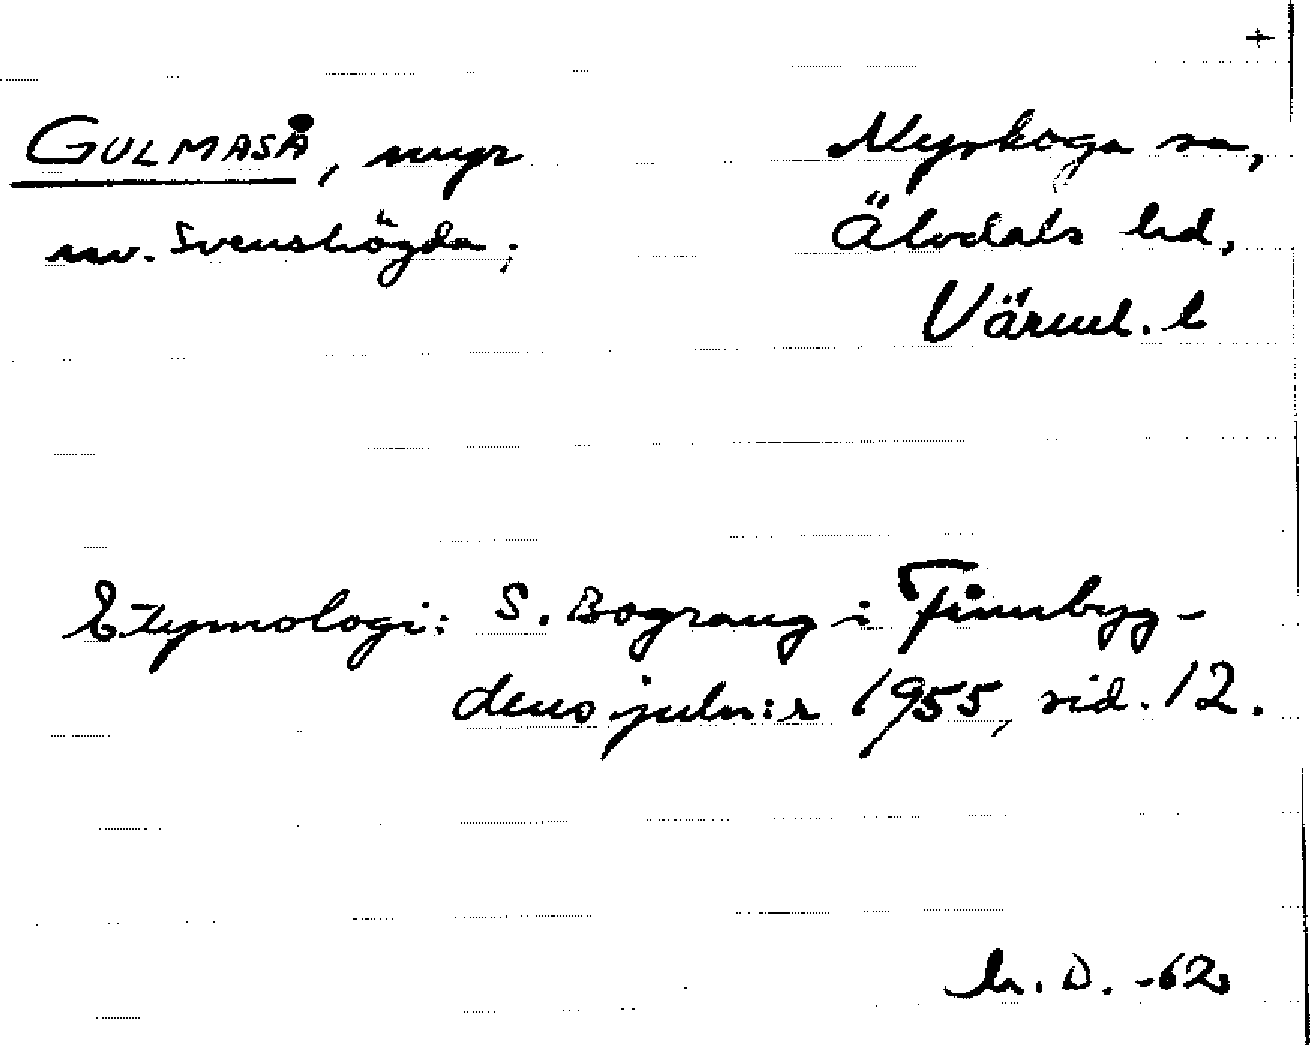 +
GULMASÅ, myr
nv. Svenshögda;
Nyskoga sn,
Älvdals hd,
Värml. l
Etymologi: S. Bograng i Finnbyg-
dens juln:r 1955, sid. 12.
D. -62